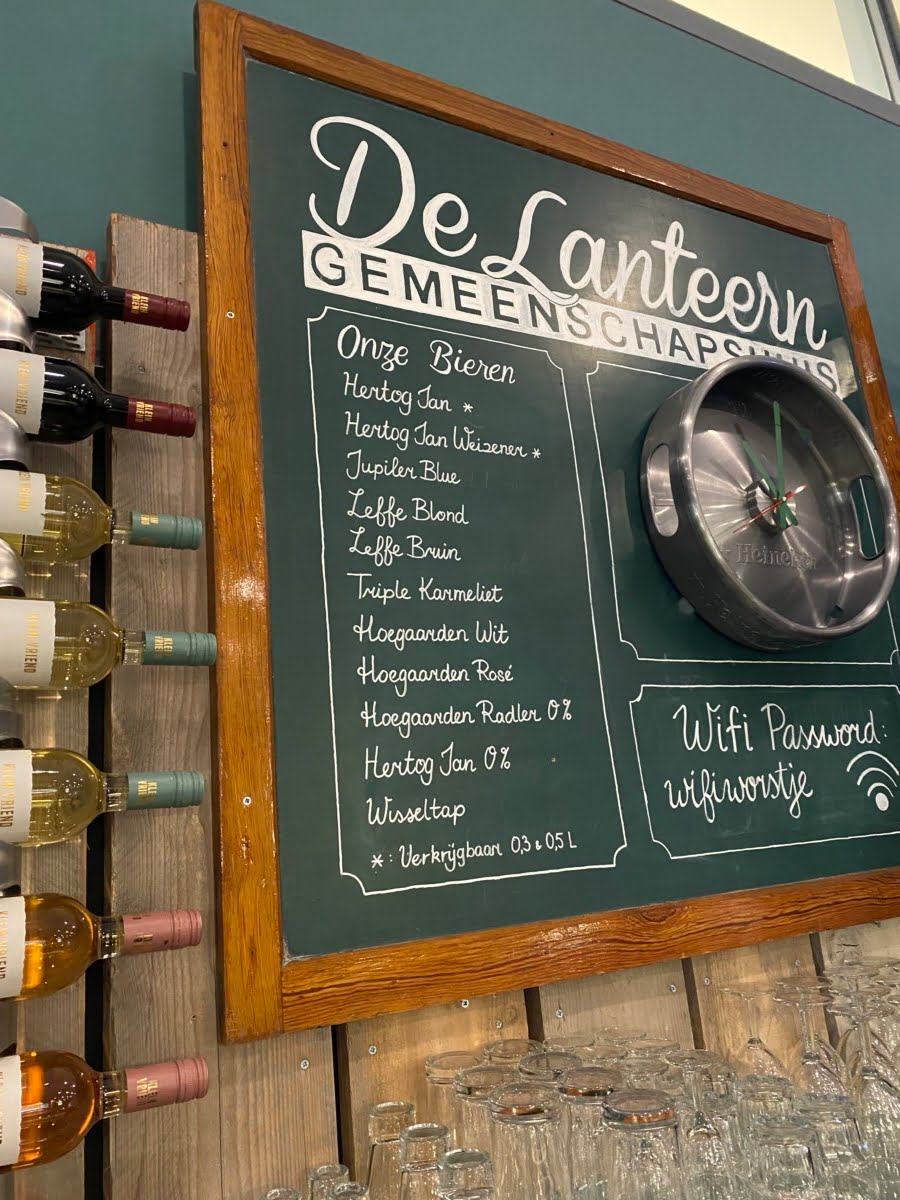 De Lanteern
GEMEENSCHAPSHUIS
Onze Bieren
Hertog Jan *
Hertog Jan Weizener *
Jupiler Blue
Leffe Blond
Leffe Bruin
Triple Karmeliet
Hoegaarden Wit
Hoegaarden Rosé
Hoegaarden Radler 0%
Hertog Jan 0%
Wisseltap
*: Verkrijgbaar 0,3 & 0,5 L
Heineken
Wifi Password:
wifiworstje